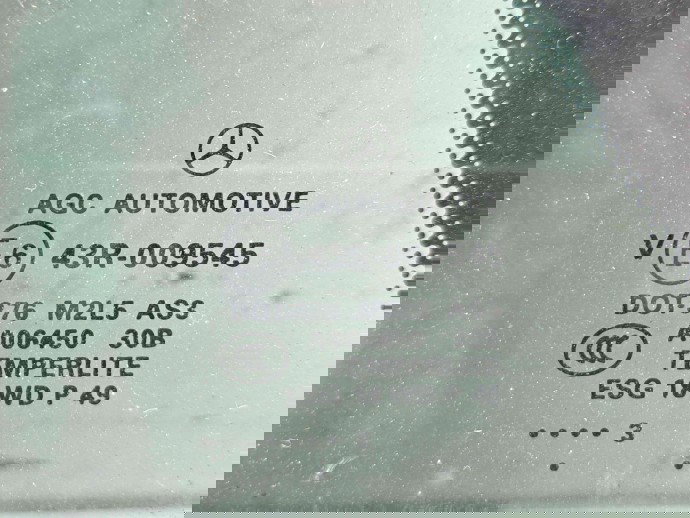 AGC AUTOMOTIVE
V E6 43R-009545
DOT76 M2L5 AS3
A006450 30B
CCC TEMPERLITE
ESG 10WD P 49
•••• 3
•